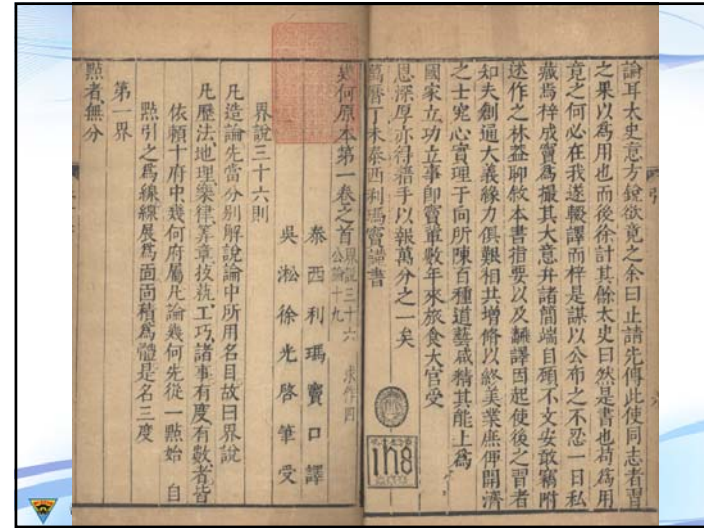 引
論耳太史意方銳欲竟之余曰止請先傳此使同志者習
之果以爲用也而後徐計其餘太史曰然是書也苟爲用
竟之何必在我遂輟譯而梓是謀以公布之不忍一日私
藏焉梓成竇爲撮其大意弁諸簡端自顧不文安敢竊附
述作之林蓋聊敘本書指要以及飜譯因起使後之習者
知夫創通大義緣力俱艱相共增修以終美業庶俾開濟
之士究心實理于向所陳百種道藝咸精其能上爲
國家立功立事卽竇輩數年來旅食大官受
恩深厚亦得藉手以報萬分之一矣
萬曆丁未泰西利瑪竇謹書
幾何原本第一卷之首 界說三十六 公論十九 求作四
泰西利瑪竇口譯
吳淞徐光啓筆受
界說三十六則
凡造論先當分別解說論中所用名目故曰界說
凡歷法地理樂律筭章技藝工巧諸事有度有數者皆
依賴十府中幾何府屬凡論幾何先從一點始自
點引之爲線線展爲面面積爲體是名三度
第一界
點者無分